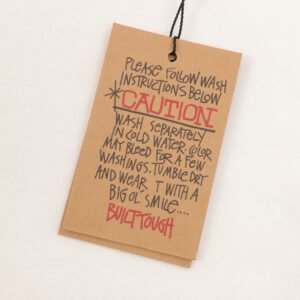 PLEASE FOLLOW WASH
INSTRUCTIONS BELOW
*CAUTION
WASH SEPARATELY
IN COLD WATER. COLOR
MAY BLEED FOR A FEW
WASHINGS. TUMBLE DRY
AND WEAR IT WITH A
BIG OL' SMILE.....
BUILT TOUGH